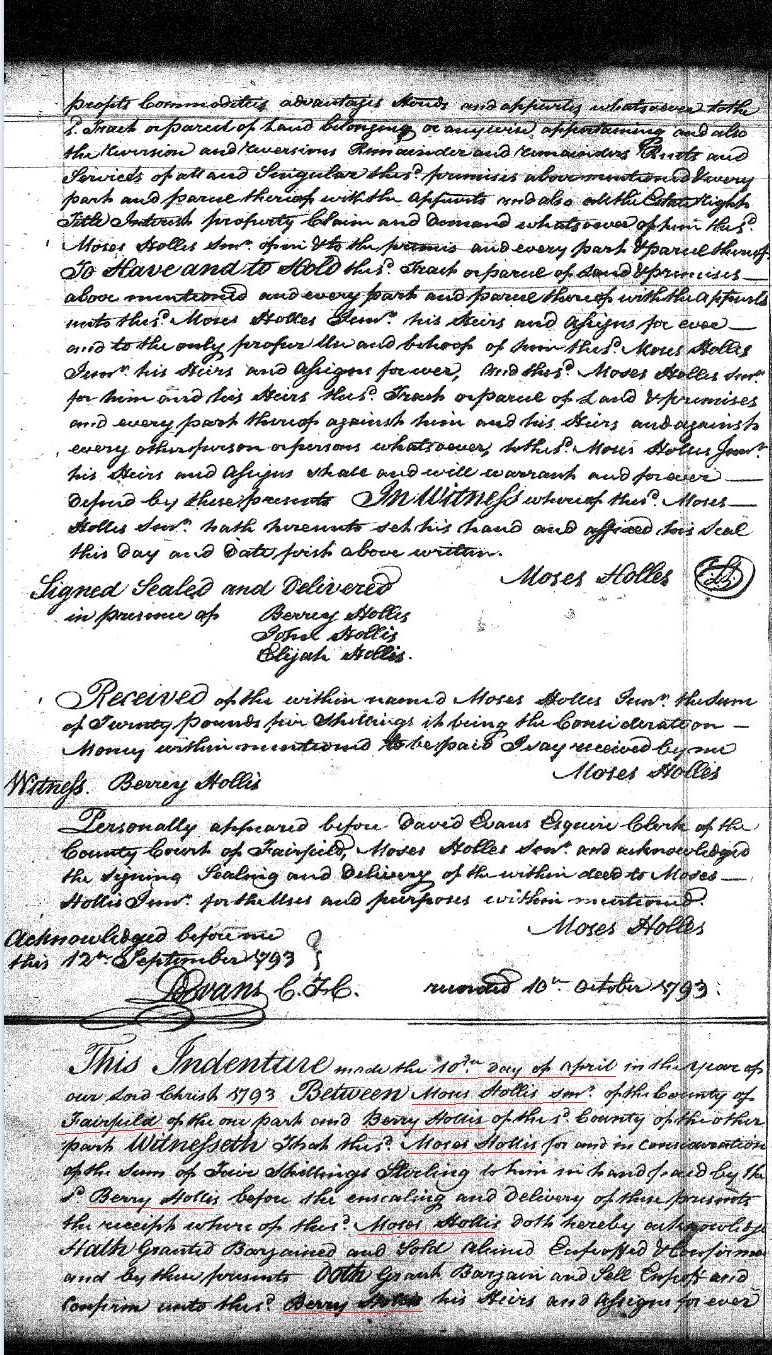 profits Commodities advantages Heads and appurts whatsoever to the
s.d Tract or parcel of Land belonging or any wise appertaining and also
the reversion and reversions Remainder and remainders Rents and
Services of all and Singular the s.d premises above mentioned & every
part and parcel thereof with the appurts and also all the Estate Right
Title Interest property Claim and demand whatsoever of him the s.d
Moses Hollis Senr. of in & to the premis and every part & parcel thereof
To Have and to Hold the s.d Tract or parcel of Land & premises —
above mentioned and every part and parcel thereof with the appurts
unto the s.d Moses Hollis Junr. his Heirs and assigns for ever —
and to the only proper Use and behoof of him the s.d Moses Hollis
Junr. his Heirs and assigns forever, and the s.d Moses Hollis Senr
for him and his Heirs the s.d Tract or parcel of Land & premises
and every part thereof against him and his Heirs and against
every other person or persons whatsoever, to the s.d Moses Hollis Junr.
his Heirs and assigns shall and will warrant and forever —
defend by these presents In Witness whereof the s.d Moses —
Hollis Senr. hath hereunto set his hand and affixed his Seal
this day and date first above written.
Signed Sealed and Delivered Moses Hollis
in presence of Berrey Hollis
John Hollis
Elijah Hollis.
Received of the within named Moses Hollis Junr. the Sum
of Twenty pounds Shillings it being the Consideration —
Money within mentioned to be paid I say received by me
Moses Hollis
Witness. Berrey Hollis
Personally appeared before David Evans Esquire Clerk of the
County Court of Fairfield, Moses Hollis Senr. and acknowledged
the Signing Sealing and Delivery of the within deed to Moses —
Hollis Junr. for the Uses and purposes within mentioned.
Moses Hollis
Acknowledged before me
this 12th September 1793
D Evans C. F. C. recorded 10th October 1793.
This Indenture made the 10th day of April in the Year of
our Lord Christ 1793 Between Moses Hollis Senr. of the County of
Fairfield of the one part and Berry Hollis of the s.d County of the other
part Witnesseth That the s.d Moses Hollis for and in consideration
of the Sum of Shillings Sterling to him in hand paid by the
s.d Berry Hollis before the ensealing and delivery of these presents
the receipt where of the s.d Moses Hollis doth hereby acknowledge
Hath Granted Bargained and Sold aliened Enfeoffed & Confirmed
and by these presents Doth Grant Bargain and Sell Enfeoff and
Confirm unto the s.d Berry Hollis his Heirs and assigns for ever